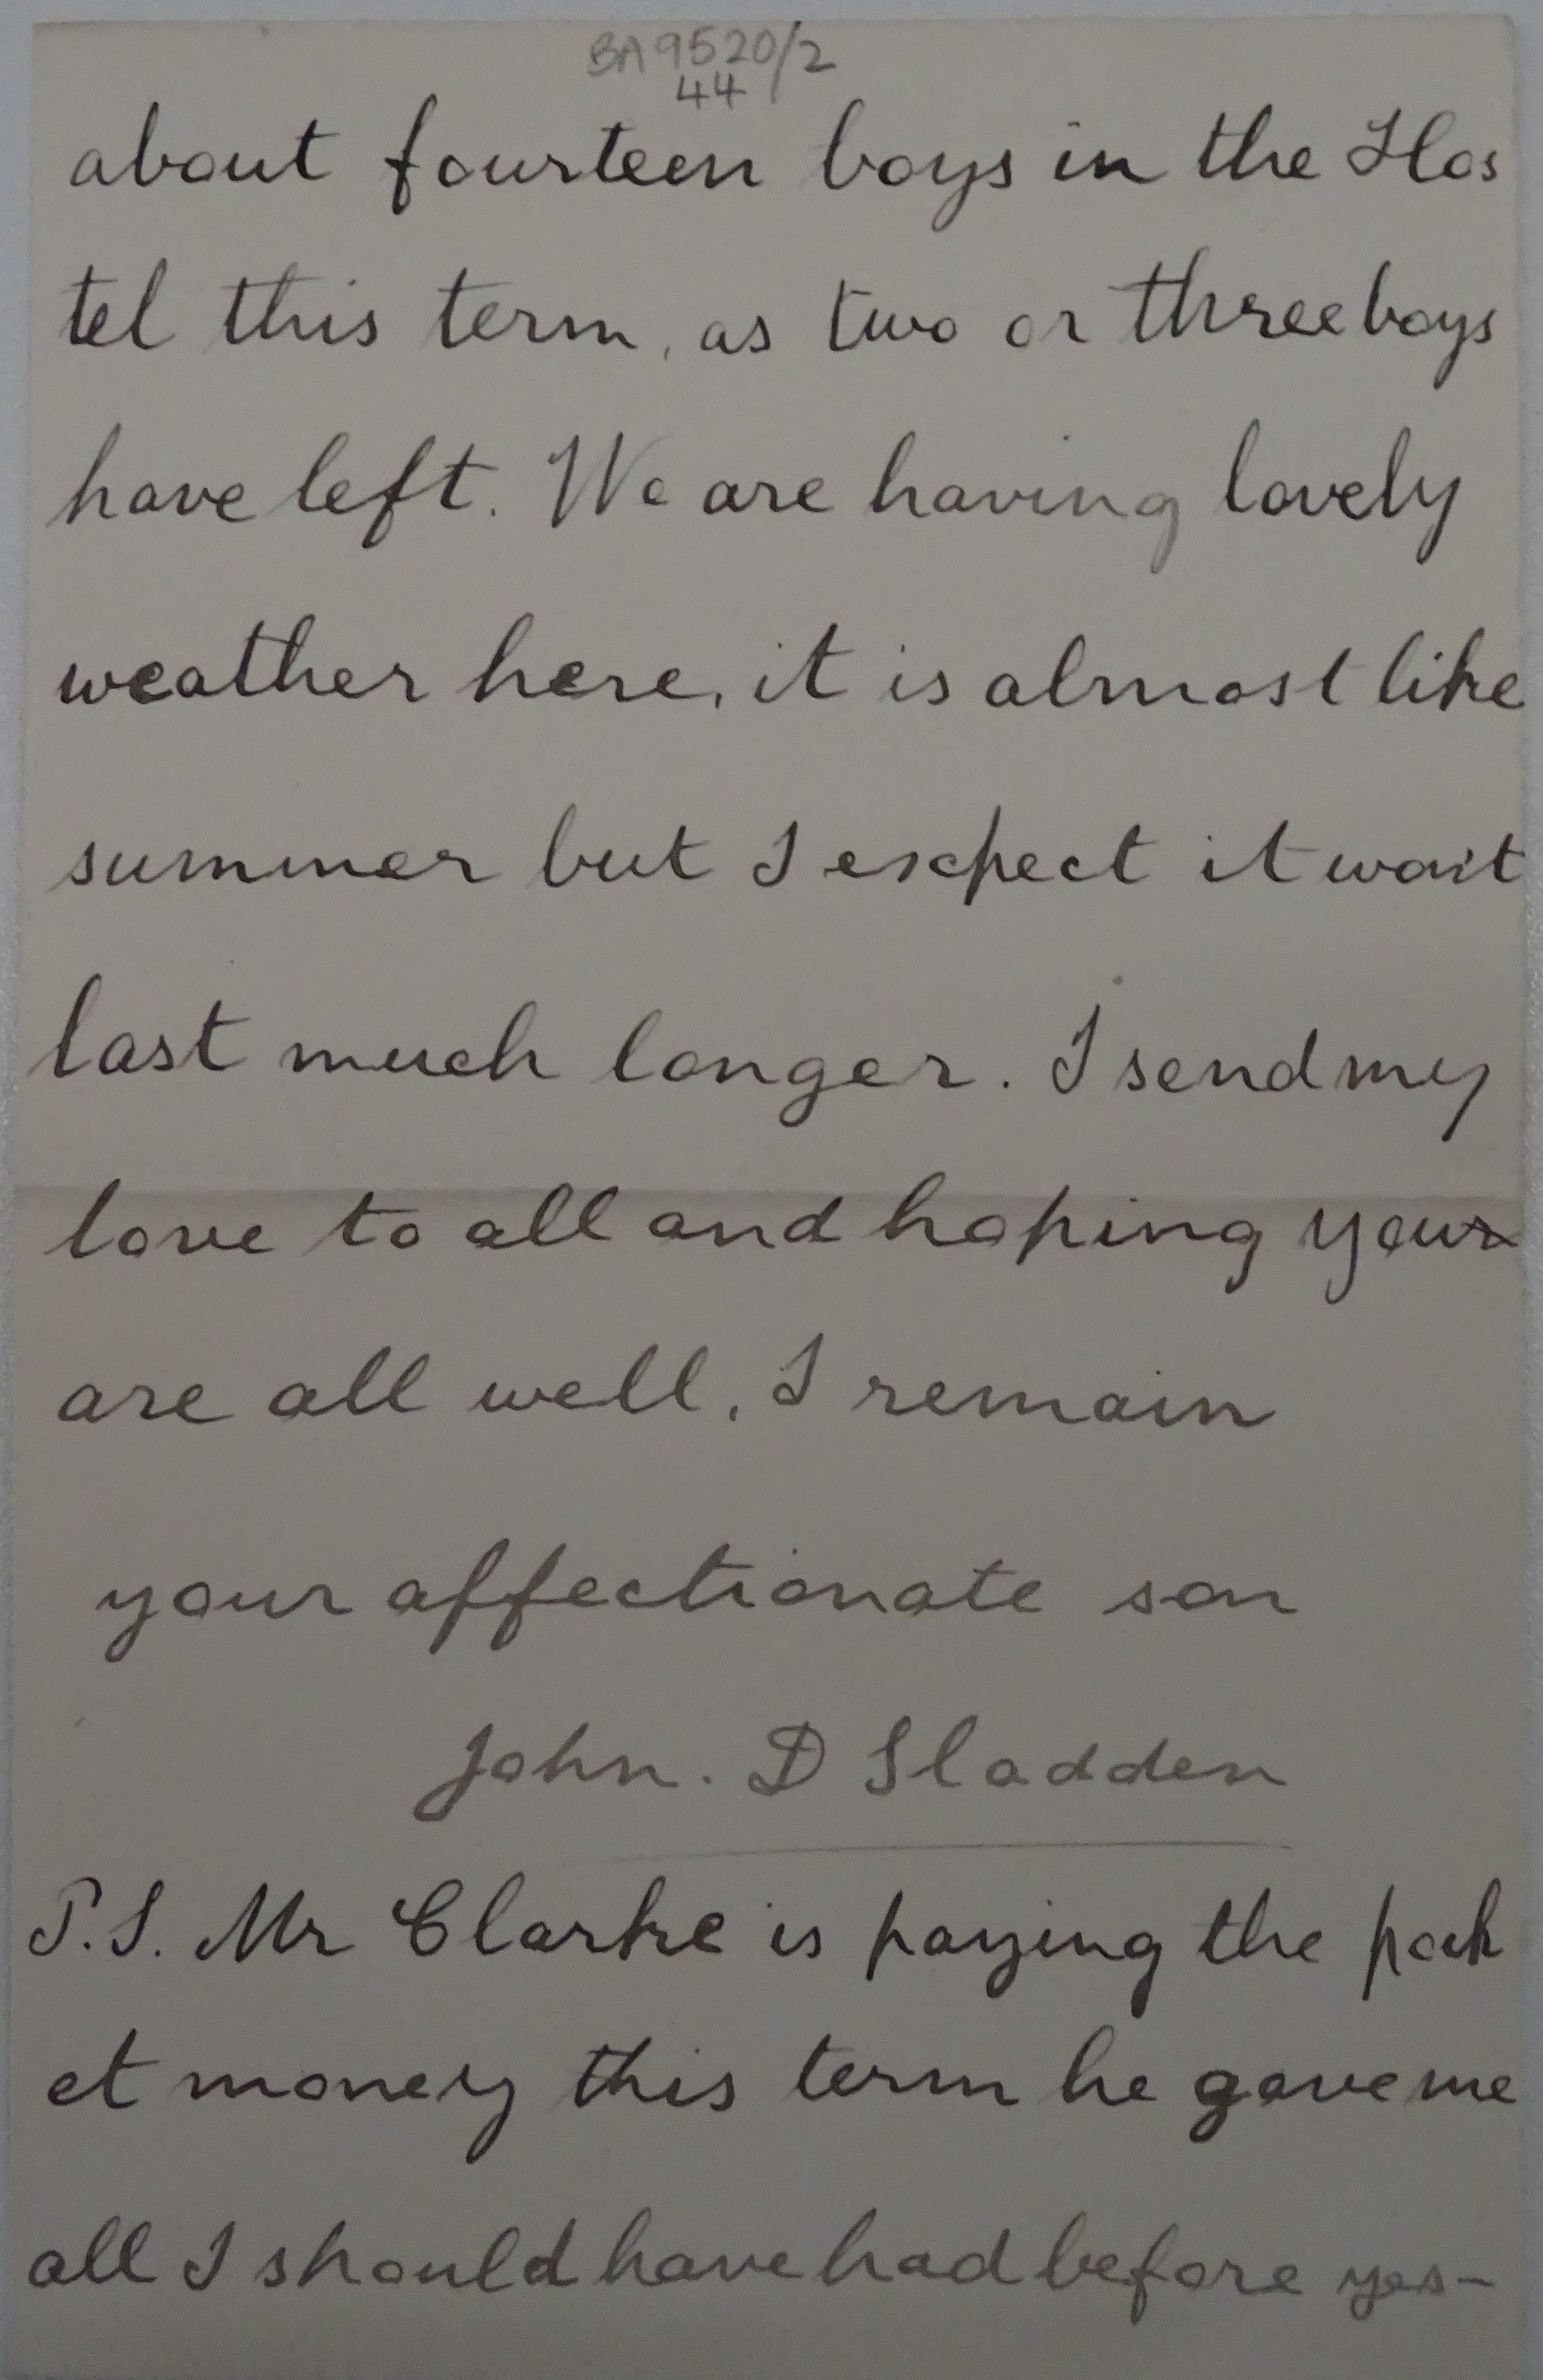 BA9520/2
44
about fourteen boys in the Hos
tel this term, as two or three boys
have left. We are having lovely
weather here, it is almost like
summer but I expect it won't
last much longer. I send my
love to all and hoping your
are all well, I remain
your affectionate son
John. D Sladden
P.S. Mr Clarke is paying the pock
et money this term he gave me
all I should have had before yes-